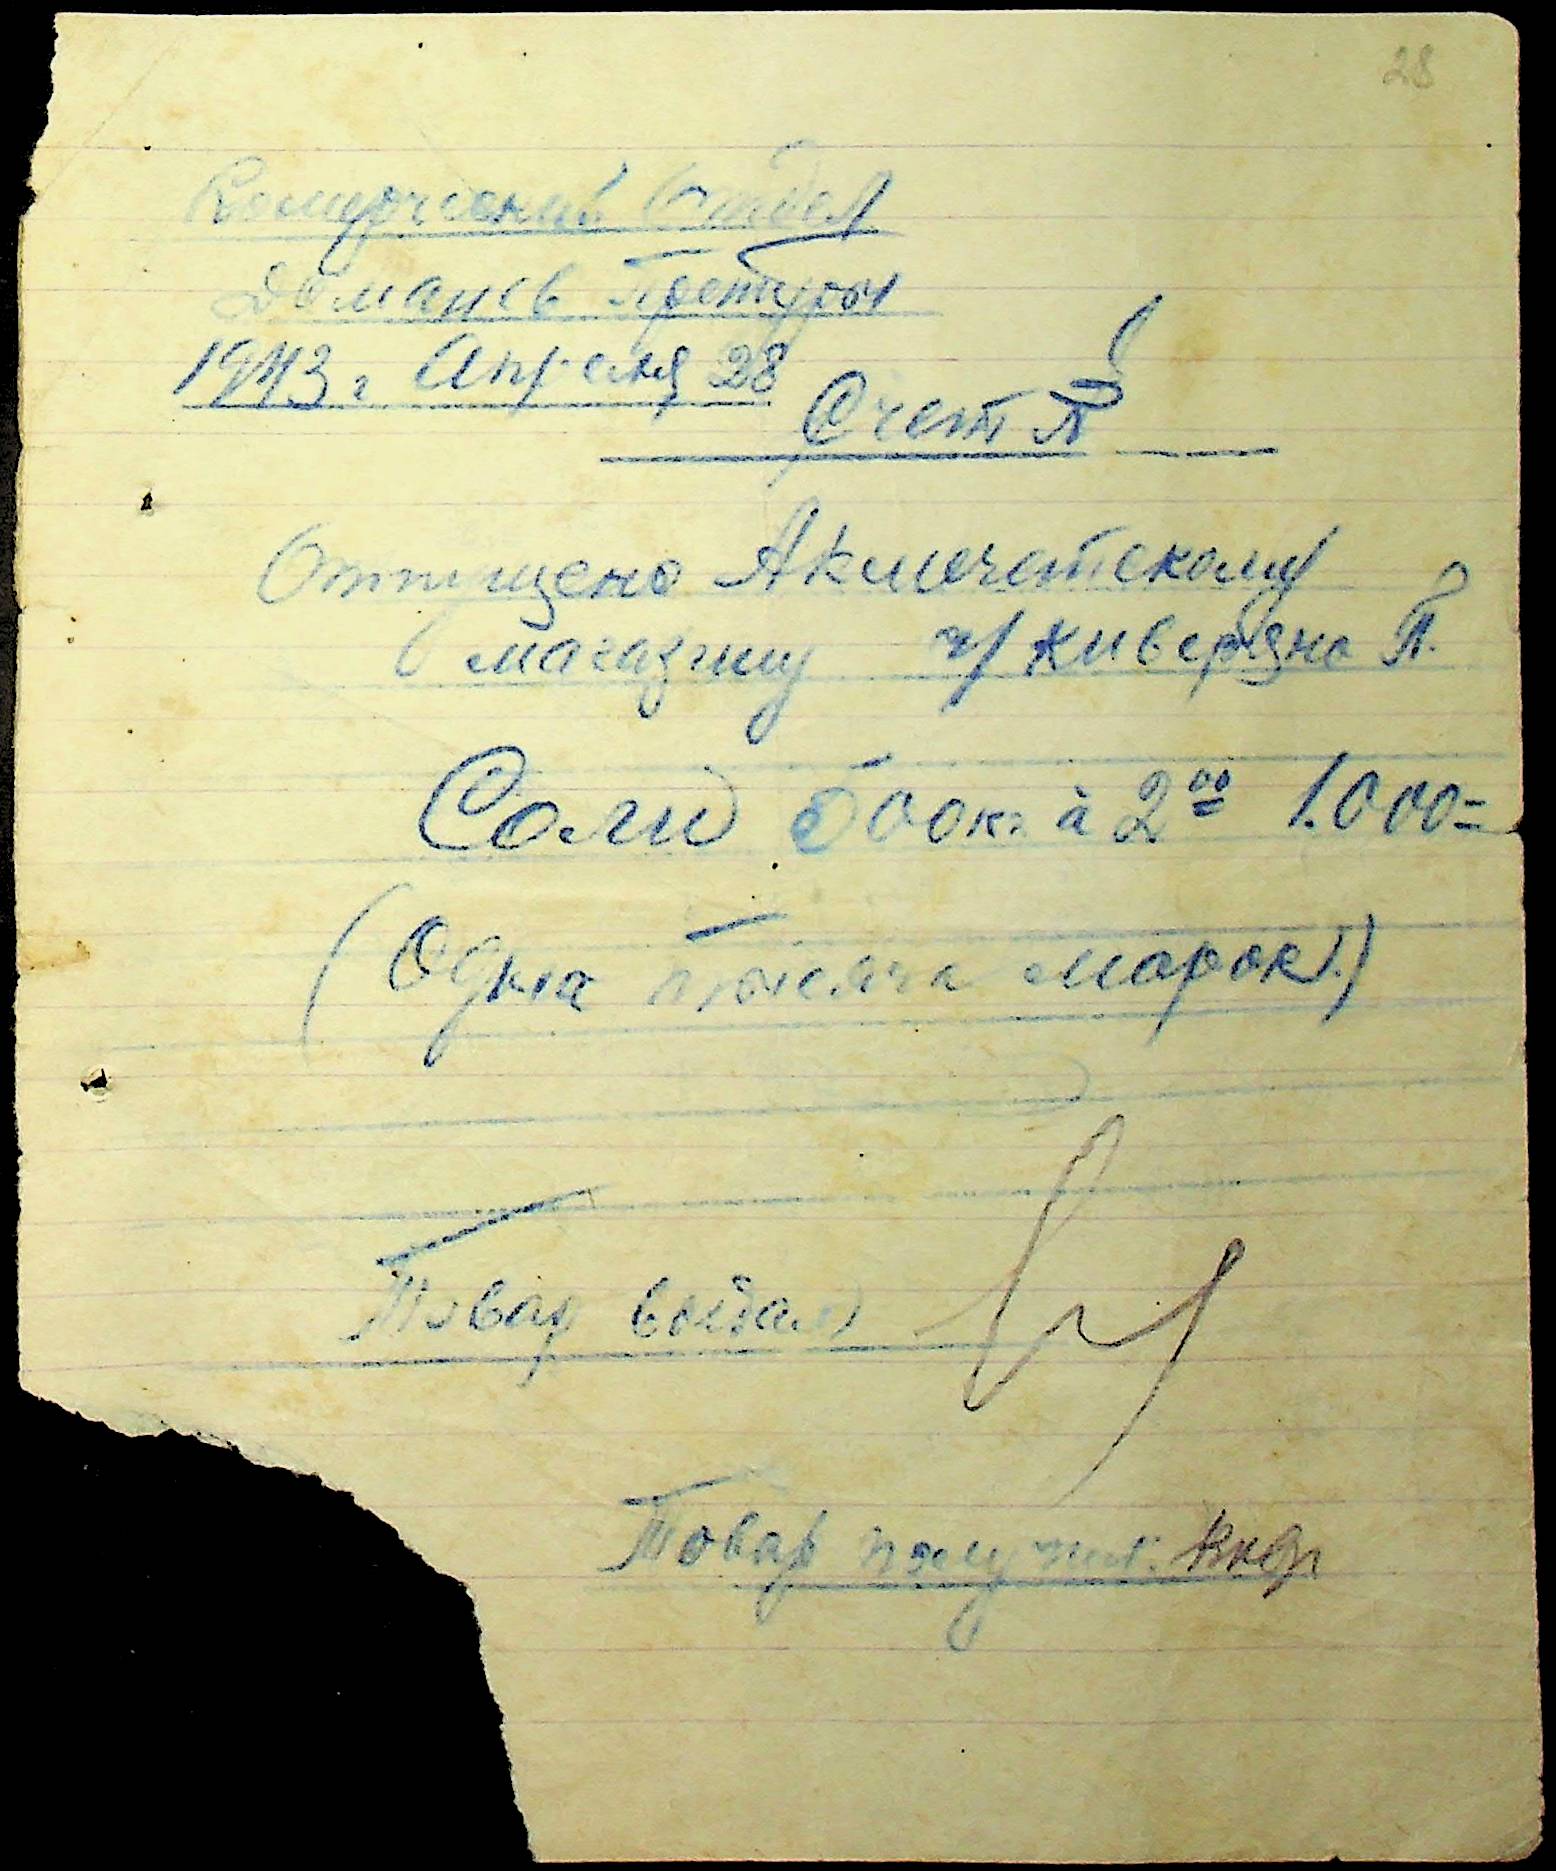 28
Комерческий Отдел
Доманев Претуры
1943 г. Апреля 28
Счет
Отпущено Акмечетскому
магазину ч/ Кивердяно П.
Соли 500 кг à 2 00 1.000=
(Одна тысяча марок.)
Товар выдал
Товар получил.